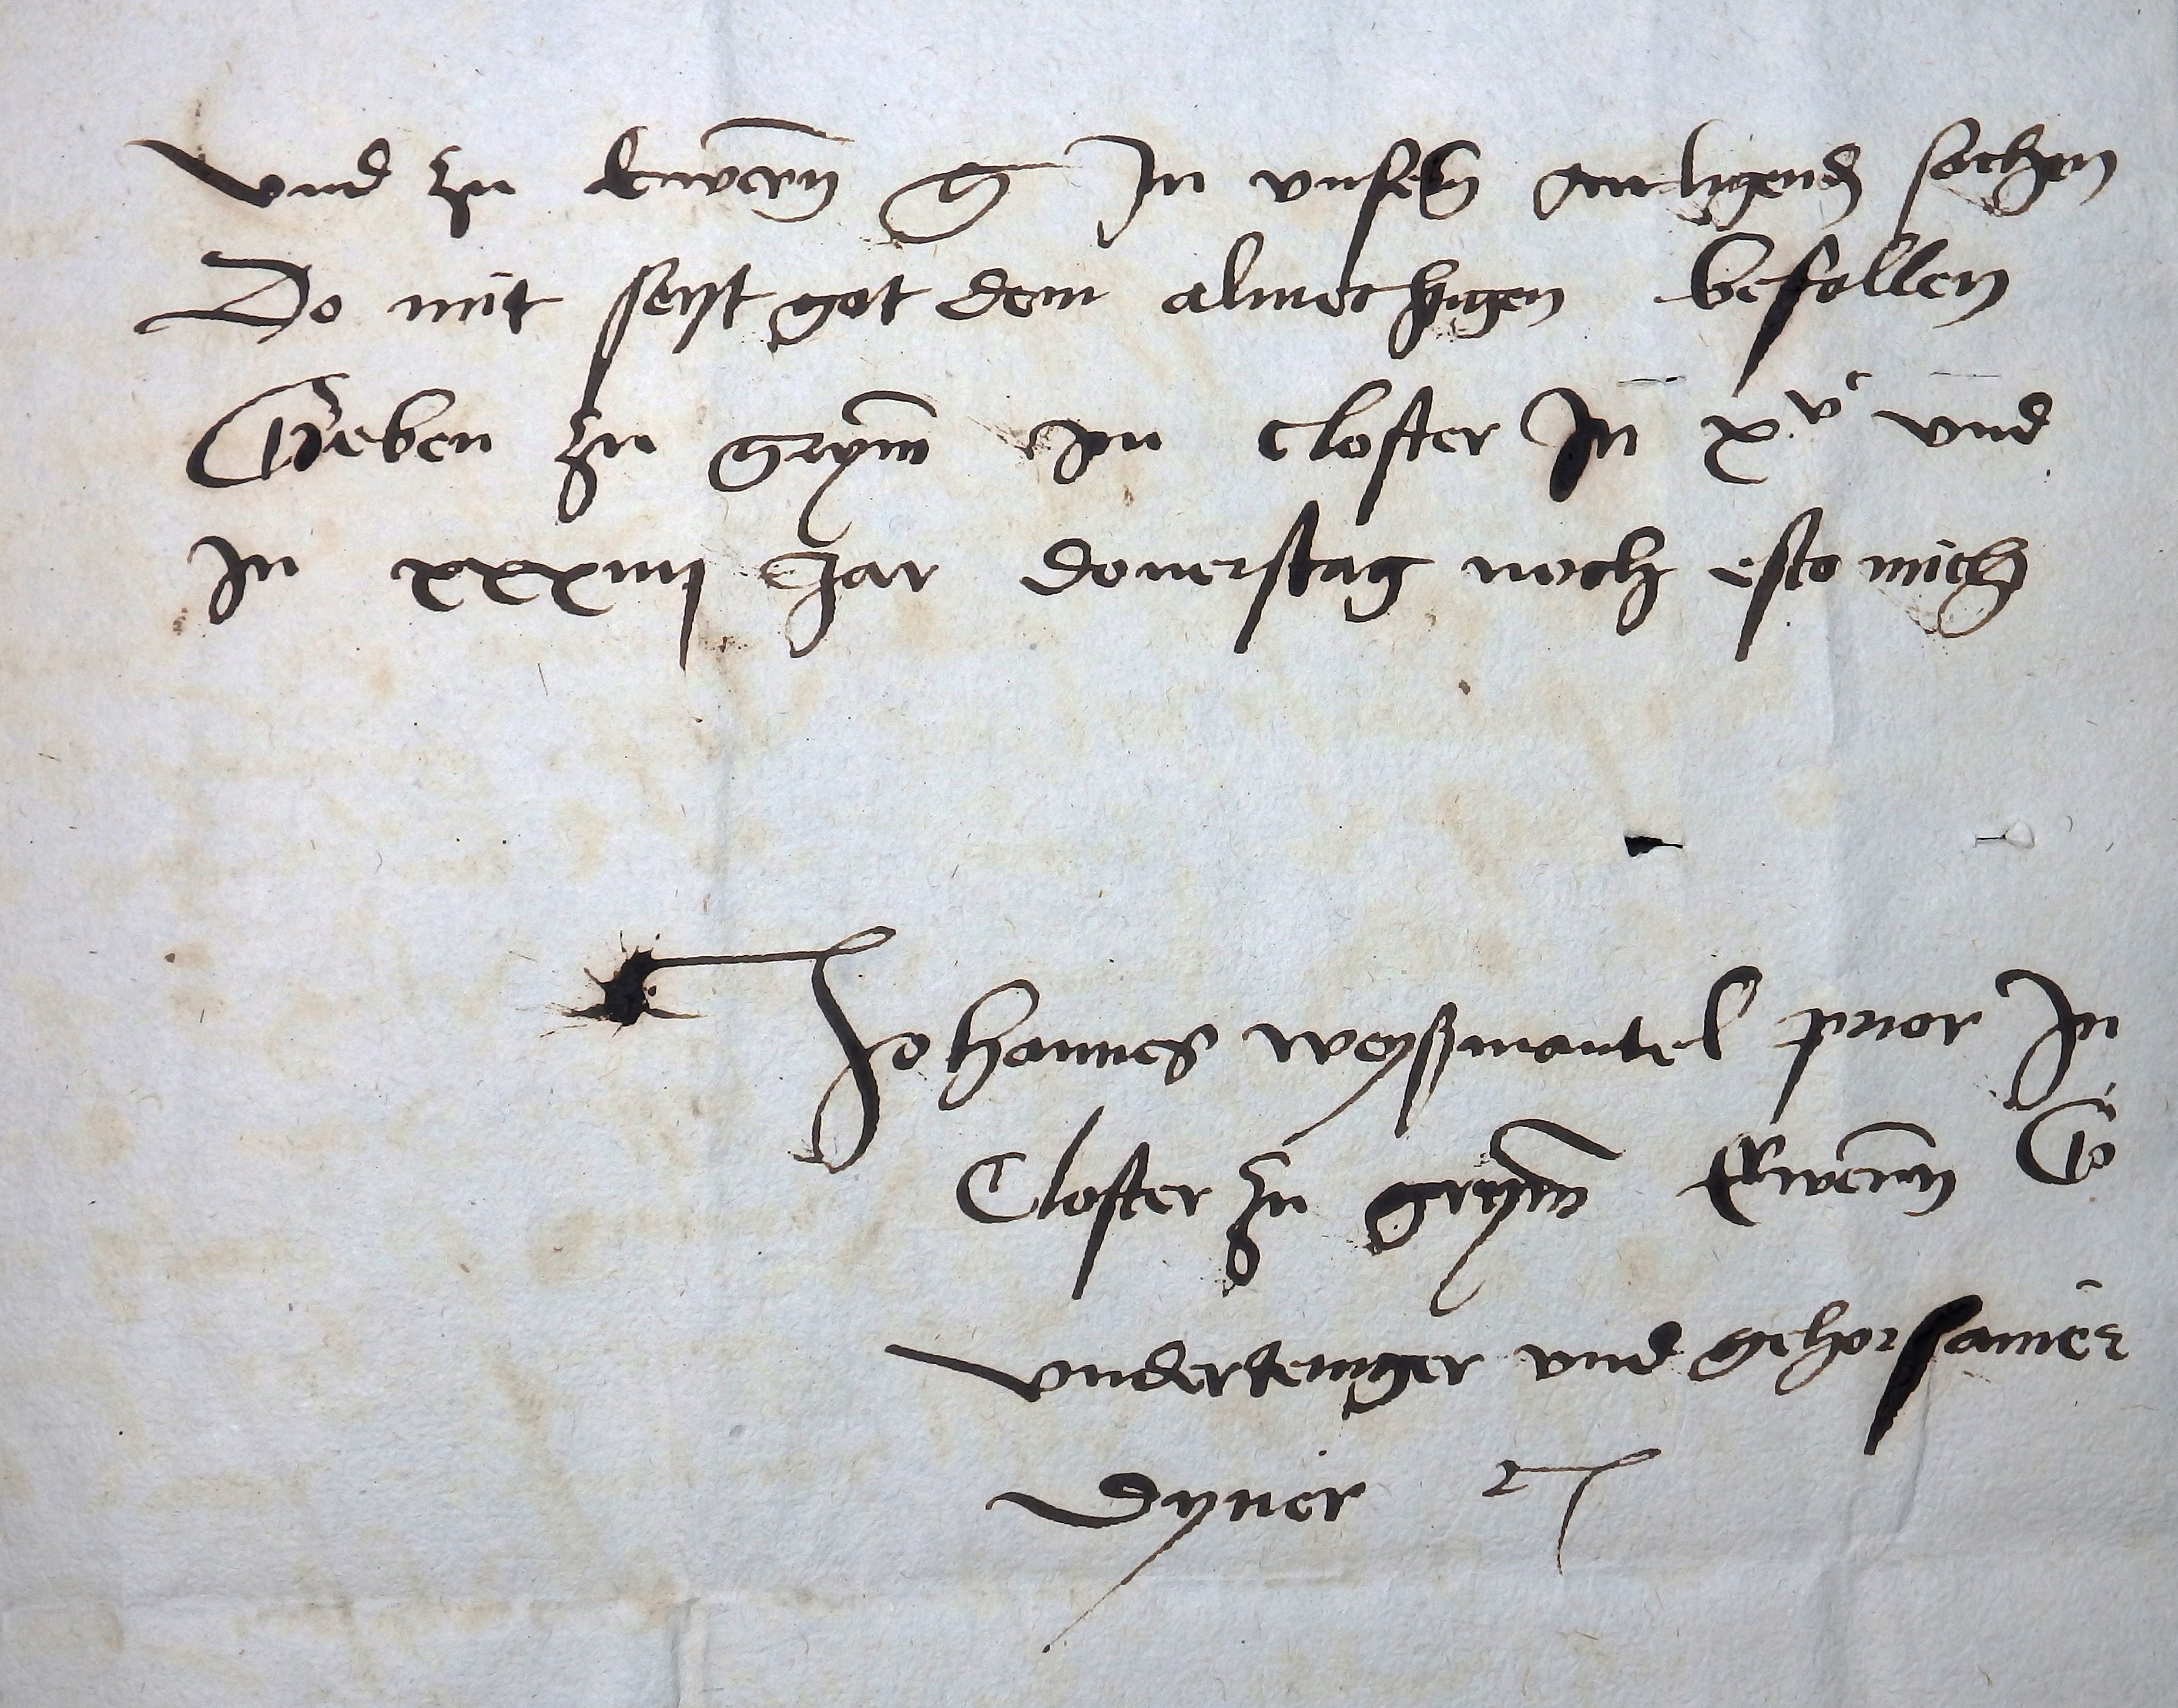 vnd zu Ewern g In vnsern anligend sachen
Do mit seyt got dem almechtigen befollen
Geben zu grym Im closter In xvc vnd
In xxxiiij Jar donerstag noch esto mich
Johannes weyßmantel prior Im
Closter zu grym Ewern G
vnderteniger vnd gehorsamer
dyner